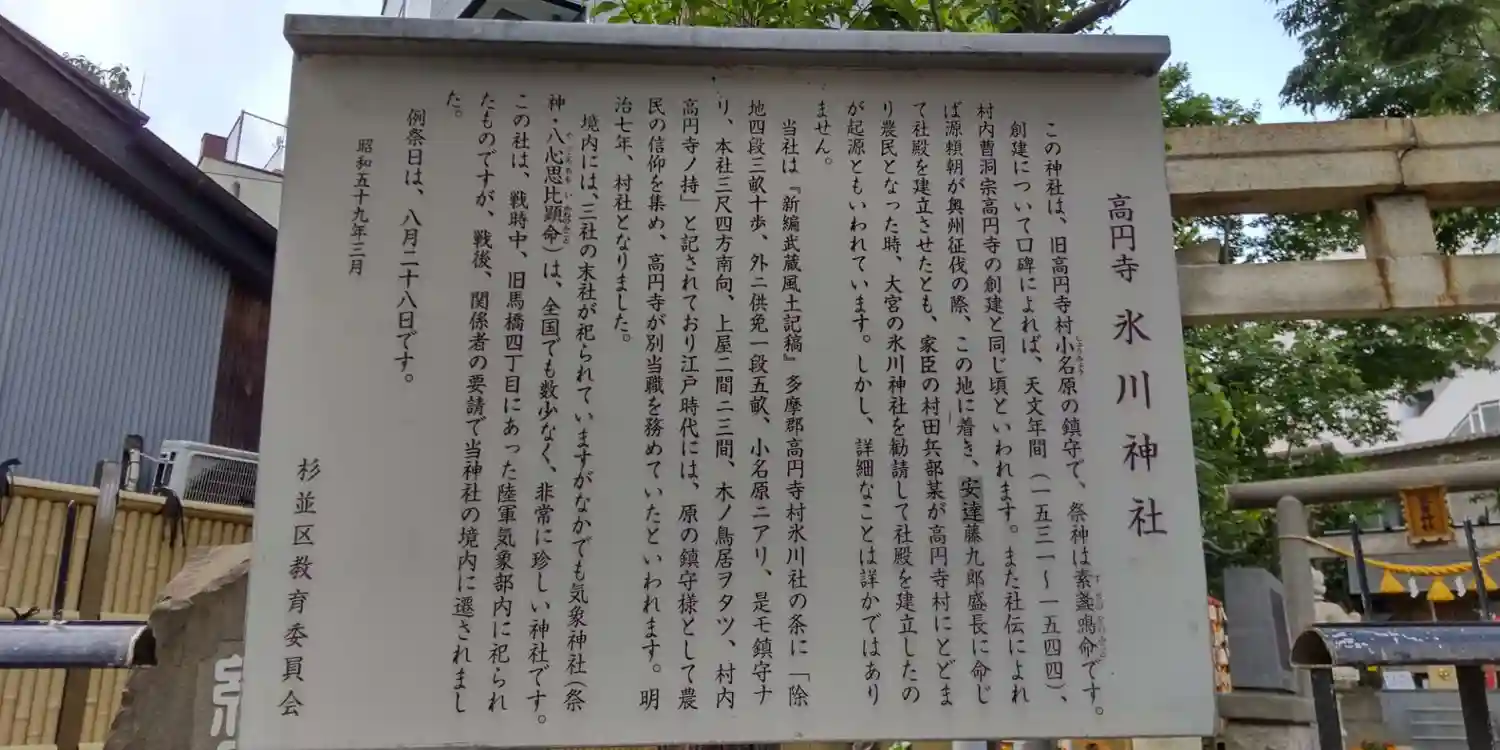 高円寺 氷川神社
この神社は、旧高円寺村小名原の鎮守で、祭神は素盞鳴命です。
創建について口碑によれば、天文年間(一五三一~一五四四)、
村内曹洞宗高円寺の創建と同じ頃といわれます。また社伝によれ
ば源頼朝が奥州征伐の際、この地に着き、安達藤九郎盛長に命じ
て社殿を建立させたとも、家臣の村田兵部某が高円寺村にとどま
り農民となった時、大宮の氷川神社を勧請して社殿を建立したの
が起源ともいわれています。しかし、詳細なことは詳かではあり
ません。
当社は『新編武蔵風土記稿』多摩郡高円寺村氷川社の条に「除
地四段三畝十歩、外ニ供免一段五畝、小名原ニアリ、是モ鎮守ナ
リ、本社三尺四方南向、上屋二間ニ三間、木ノ鳥居ヲタツ、村内
高円寺ノ持」と記されており江戸時代には、原の鎮守様として農
民の信仰を集め、高円寺が別当職を務めていたといわれます。明
治七年、村社となりました。
境内には、三社の末社が祀られていますがなかでも気象神社(祭
神・八心思比顕命)は、全国でも数少なく、非常に珍しい神社です。
この社は、戦時中、旧馬橋四丁目にあった陸軍気象部内に祀られ
たものですが、戦後、関係者の要請で当神社の境内に遷されまし
た。
例祭日は、八月二十八日です。
昭和五十九年三月
杉並区教育委員会